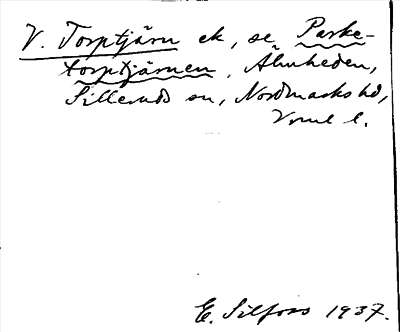 V. Torptjärn ek, se Parke-
torptjärnen, Älmheden,
Silleruds sn, Nordmarks hd,
Vrml l.
E. Silfors 1937.